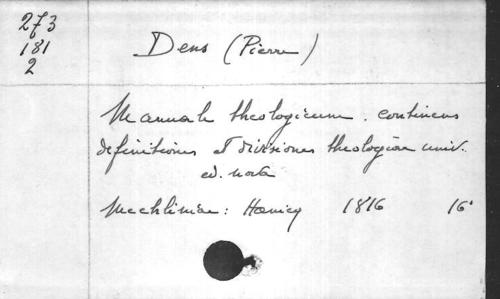 273
181
2
Dens (Pierre)
Manuale theologicum. continens
definitiones et divisiones theologiae univ.
ed. nova
Mechliniae: Hanicq 1816 16°